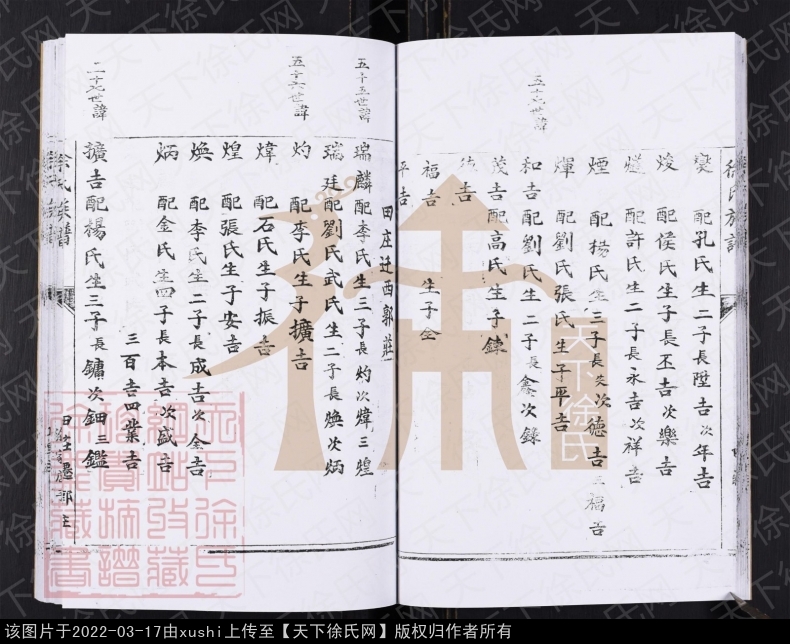 徐氏族譜
五十六世諱
燮 配孔氏生二子長陞吉次年吉
焌 配侯氏生子長丕吉次樂吉
配許氏生二子長永吉次祥吉
煙 配楊氏生三子長炎次德吉三福吉
煇 配劉氏張氏生子平吉
和吉配劉氏生二子長鑫次錄
茂吉配高氏生子錬
德吉
福吉 生子金
平吉
田庄迁西郭莊
五十五世諱
瑞麟配李氏生三子長灼次煒三煌
瑞廷配劉氏武氏生二子長煥次炳
五十六世諱
灼 配李氏生子擴吉
煒 配石氏生子振吉
煌 配張氏生子安吉
煥 配李氏生二子長成吉次全吉
炳 配金氏生四子長本吉次盛吉
三百吉四業吉
擴吉配楊氏生三子長鏞次鈿三鑑
徐氏族譜
天下徐氏
天下徐氏网
该图片于2022-03-17由xushi上传至【天下徐氏网】版权归作者所有